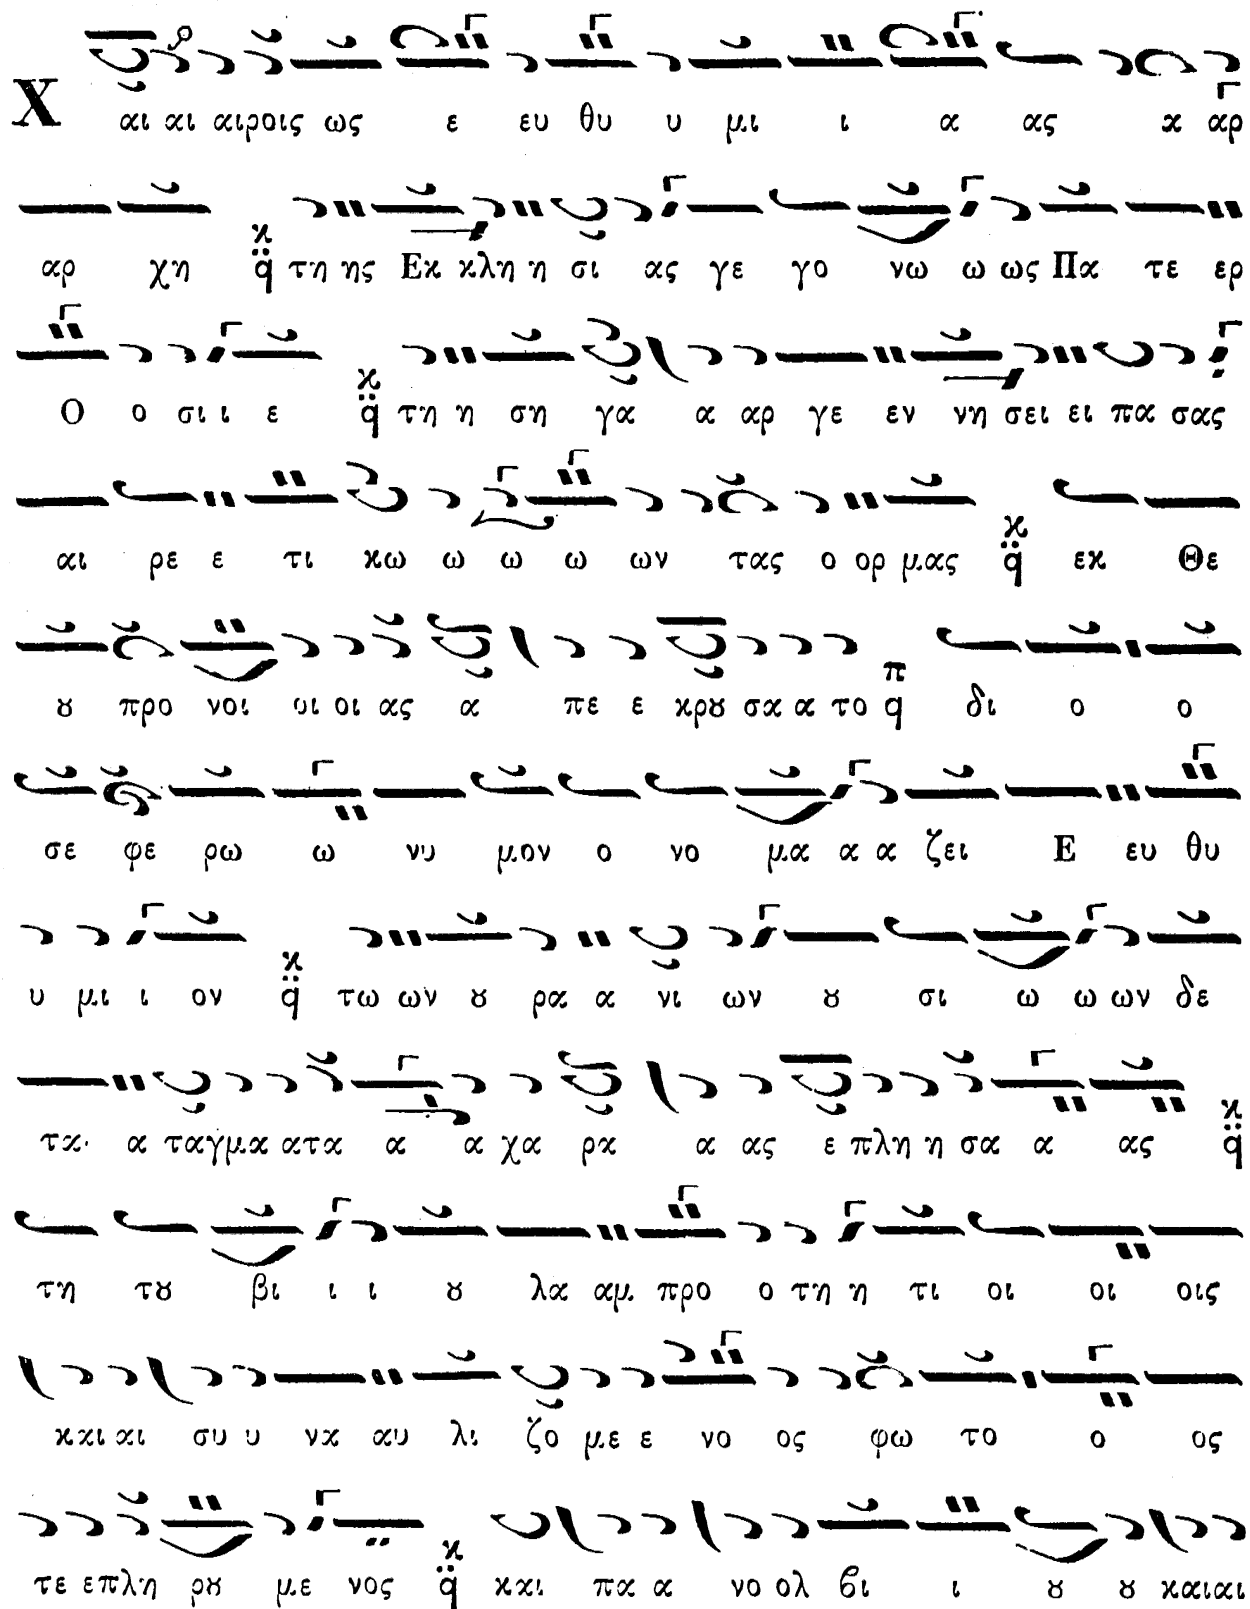 Χ αι αι αιροις ως ε ευ θυ υ μι ι α ας κ αρ
αρ χη κ q̈ τη ης Εκ κλη η σι ας γε γο νω ω ως Πα τε ερ
Ο ο σι ι ε κ q̈ τη η ση γα α αρ γε εν νη σει ει πα σας
αι ρε ε τι κω ω ω ω ων τας ο ορ μας κ q̈ εκ Θε
ȣ προ νοι οι οι ας α πε ε κρȣ σα α το π q δι ο ο
σε φε ρω ω νυ μον ο νο μα α α ζει Ε ευ θυ
υ μι ι ον κ q̈ τω ων ȣ ρα α νι ων ȣ σι ω ω ων δε
τα α ταγμα ατα α α χα ρα α ας ε πλη η σα α ας κ q̈
τη τȣ βι ι ι ȣ λα αμ προ ο τη η τι οι οι οις
και αι συ υ να αυ λι ζο με ε νο ος φω το ο ος
τε επλη ρȣ με νος κ q̈ και πα α νο ολ βι ι ȣ ȣ και αι